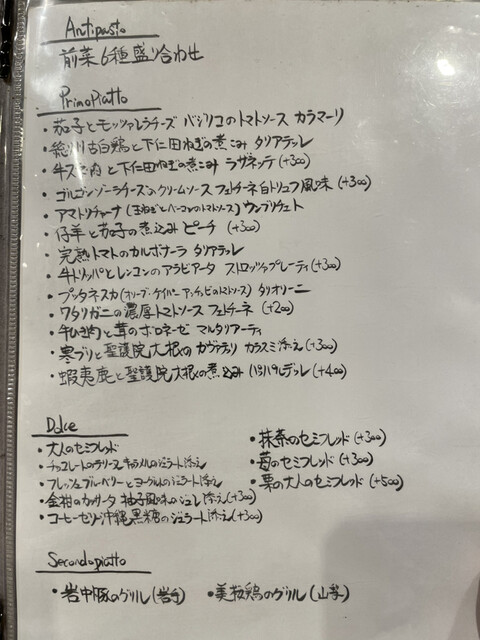 Antipasto
前菜6種盛り合わせ
PrimoPiatto
・茄子とモッツァレラチーズ バジリコのトマトソース カラマーリ
・総州古白鶏と下仁田ねぎの煮こみ タリアテッレ
・牛すじ肉と下仁田ねぎの煮こみ ラザネッテ(+300)
・ゴルゴンゾーラチーズのクリームソース フェトチーネ白トリュフ風味(+300)
・アマトリチャーナ(玉ねぎとベーコンのトマトソース)ウンブリチェット
・仔羊と茄子の煮込み ピーチ (+300)
・完熟トマトのカルボナーラ タリアテッレ
・牛トリッパとレンコンのアラビアータ ストロッツァプレーティ(+300)
・プッタネスカ(オリーブ・ケイパー アンチョビのトマトソース)タリオリーニ
・ワタリガニの濃厚トマトソース フェトチーネ (+200)
・牛ひき肉と茸のボロネーゼ マルタリアーティ
・寒ブリと聖護院大根のカヴァテッリ カラスミ添え(+300)
・蝦夷鹿と聖護院大根の煮込み パッパルデッレ(+400)
Dolce
・大人のセミフレッド
・チョコレートのテリーヌ キャラメルのジェラート添え
・フレッシュブルーベリーとヨーグルトのジェラート添え
・金柑のカッサータ 柚子風味のジュレ添え(+300)
・コーヒーゼリー沖縄黒糖のジェラート添え(+300)
・抹茶のセミフレッド (+300)
・苺のセミフレッド (+300)
・栗の大人のセミフレッド (+500)
Secondopiatto
・岩中豚のグリル(岩手)
・美桜鶏のグリル(山形)